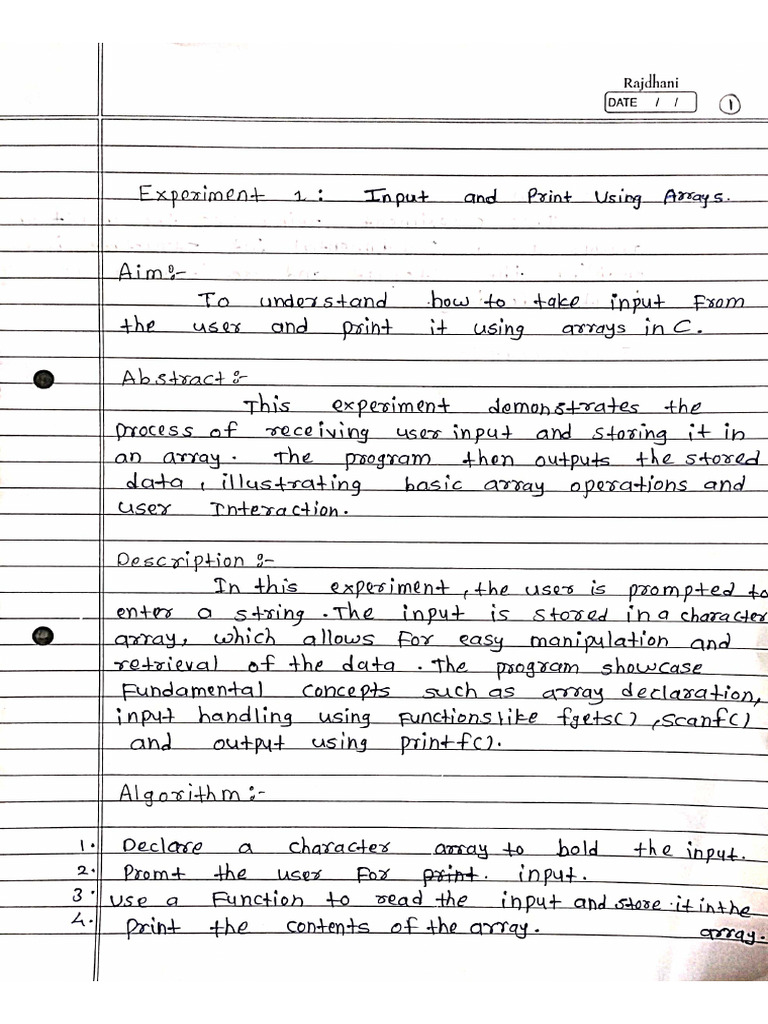 Rajdhani
DATE / /
1
Experiment 1: Input and Print Using Arrays.
Aim:-
To understand how to take input From
the user and print it using arrays in C.
Abstract:-
This experiment demonstrates the
process of receiving user input and storing it in
an array. The program then outputs the stored
data, illustrating basic array operations and
user Interaction.
Description:-
In this experiment, the user is prompted to
enter a string. The input is stored in a character
array, which allows for easy manipulation and
retrieval of the data. The program showcase
Fundamental concepts such as array declaration,
input handling using Functions like fgets(), scanf()
and output using printf().
Algorithm:-
1. Declare a character array to hold the input.
2. Promt the user For print. input.
3. Use a Function to read the input and store it in the
array.
4. Print the contents of the array.